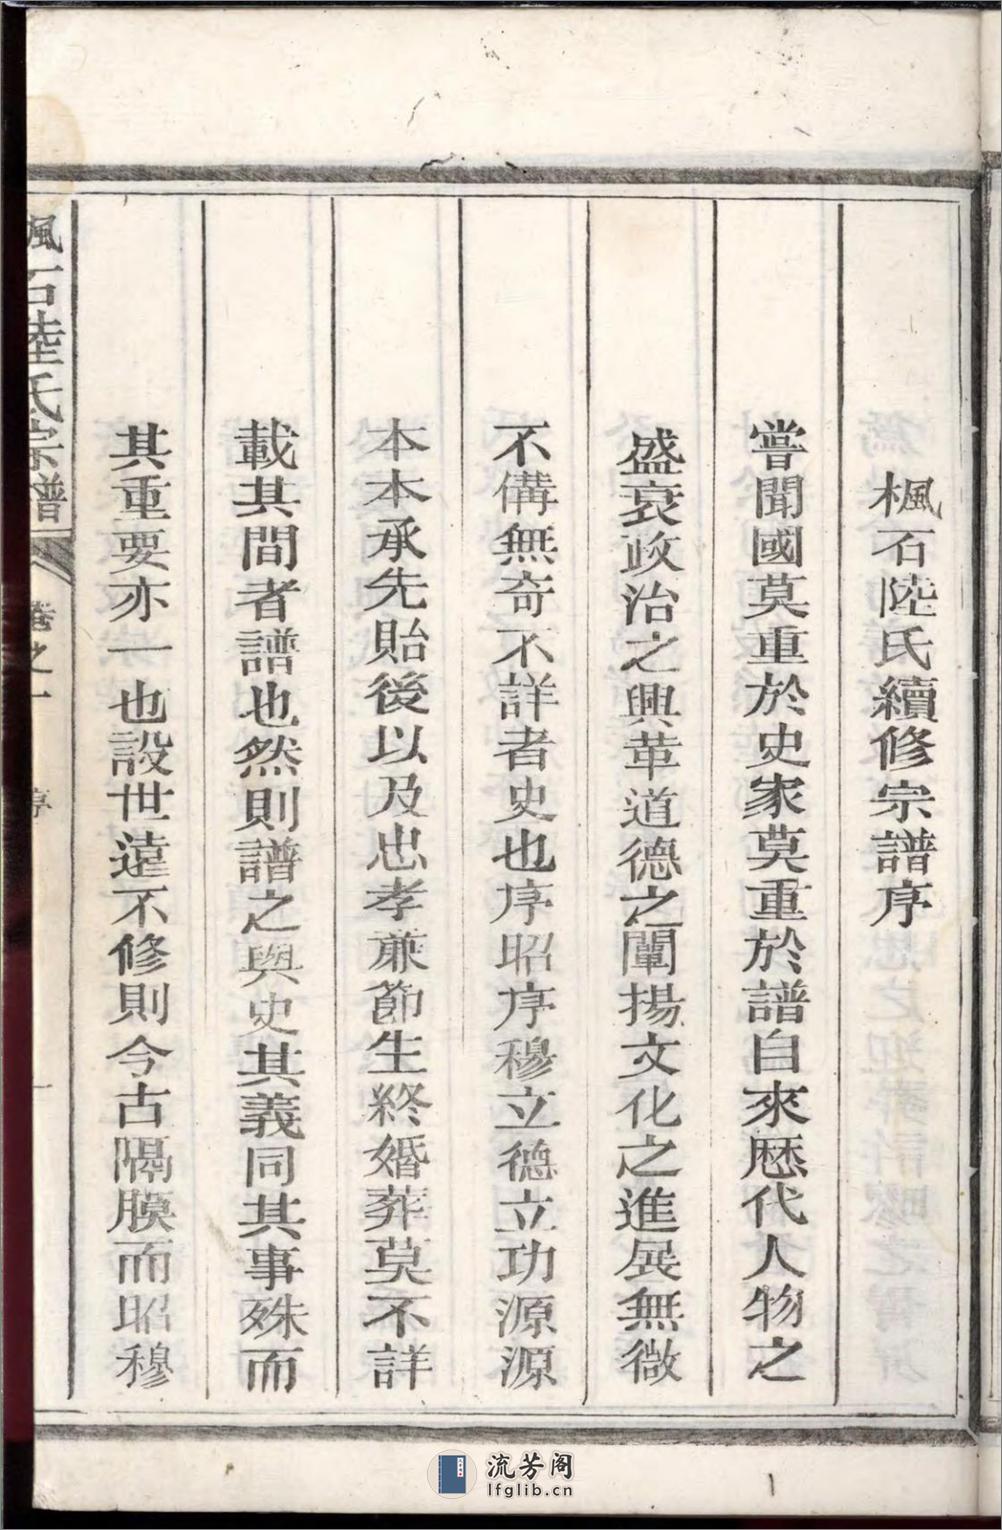 楓石陸氏續修宗譜序
嘗聞國莫重於史家莫重於譜自來歷代人物之
盛衰政治之興革道德之闡揚文化之進展無微
不備無奇不詳者史也序昭序穆立德立功源源
本本承先貽後以及忠孝廉節生終婚葬莫不詳
載其間者譜也然則譜之與史其義同其事殊而
其重要亦一也設世遠不修則今古隔膜而昭穆
楓石陸氏宗譜
卷之一
序
一
流芳阁
lfglib.cn